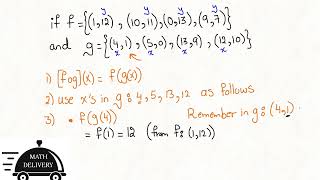 y y y y
if f={(1,12), (10,11), (0,13), (9,7)}
and g={(4,1), (5,0), (13,9), (12,10)}
x x x x
1) [fog](x) = f(g(x))
2) use x's in g: 4, 5, 13, 12 as follows
3) • f(g(4)) Remember in g: (4,1).
= f(1) = 12 (from f: (1,12))
MATH
DELIVERY